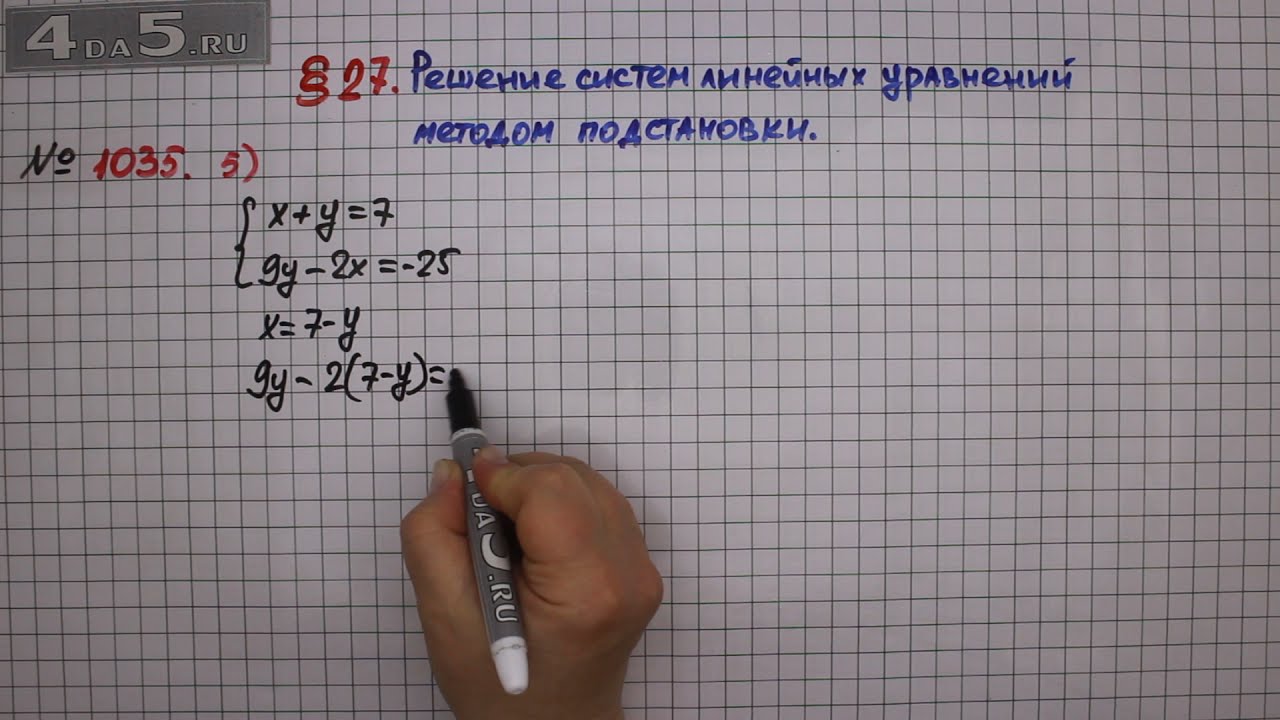 4DA5.RU
§ 27. Решение систем линейных уравнений
методом подстановки.
№ 1035. 5)
{ x + y = 7
9y - 2x = -25
x = 7 - y
9y - 2(7-y) =
DA5.RU